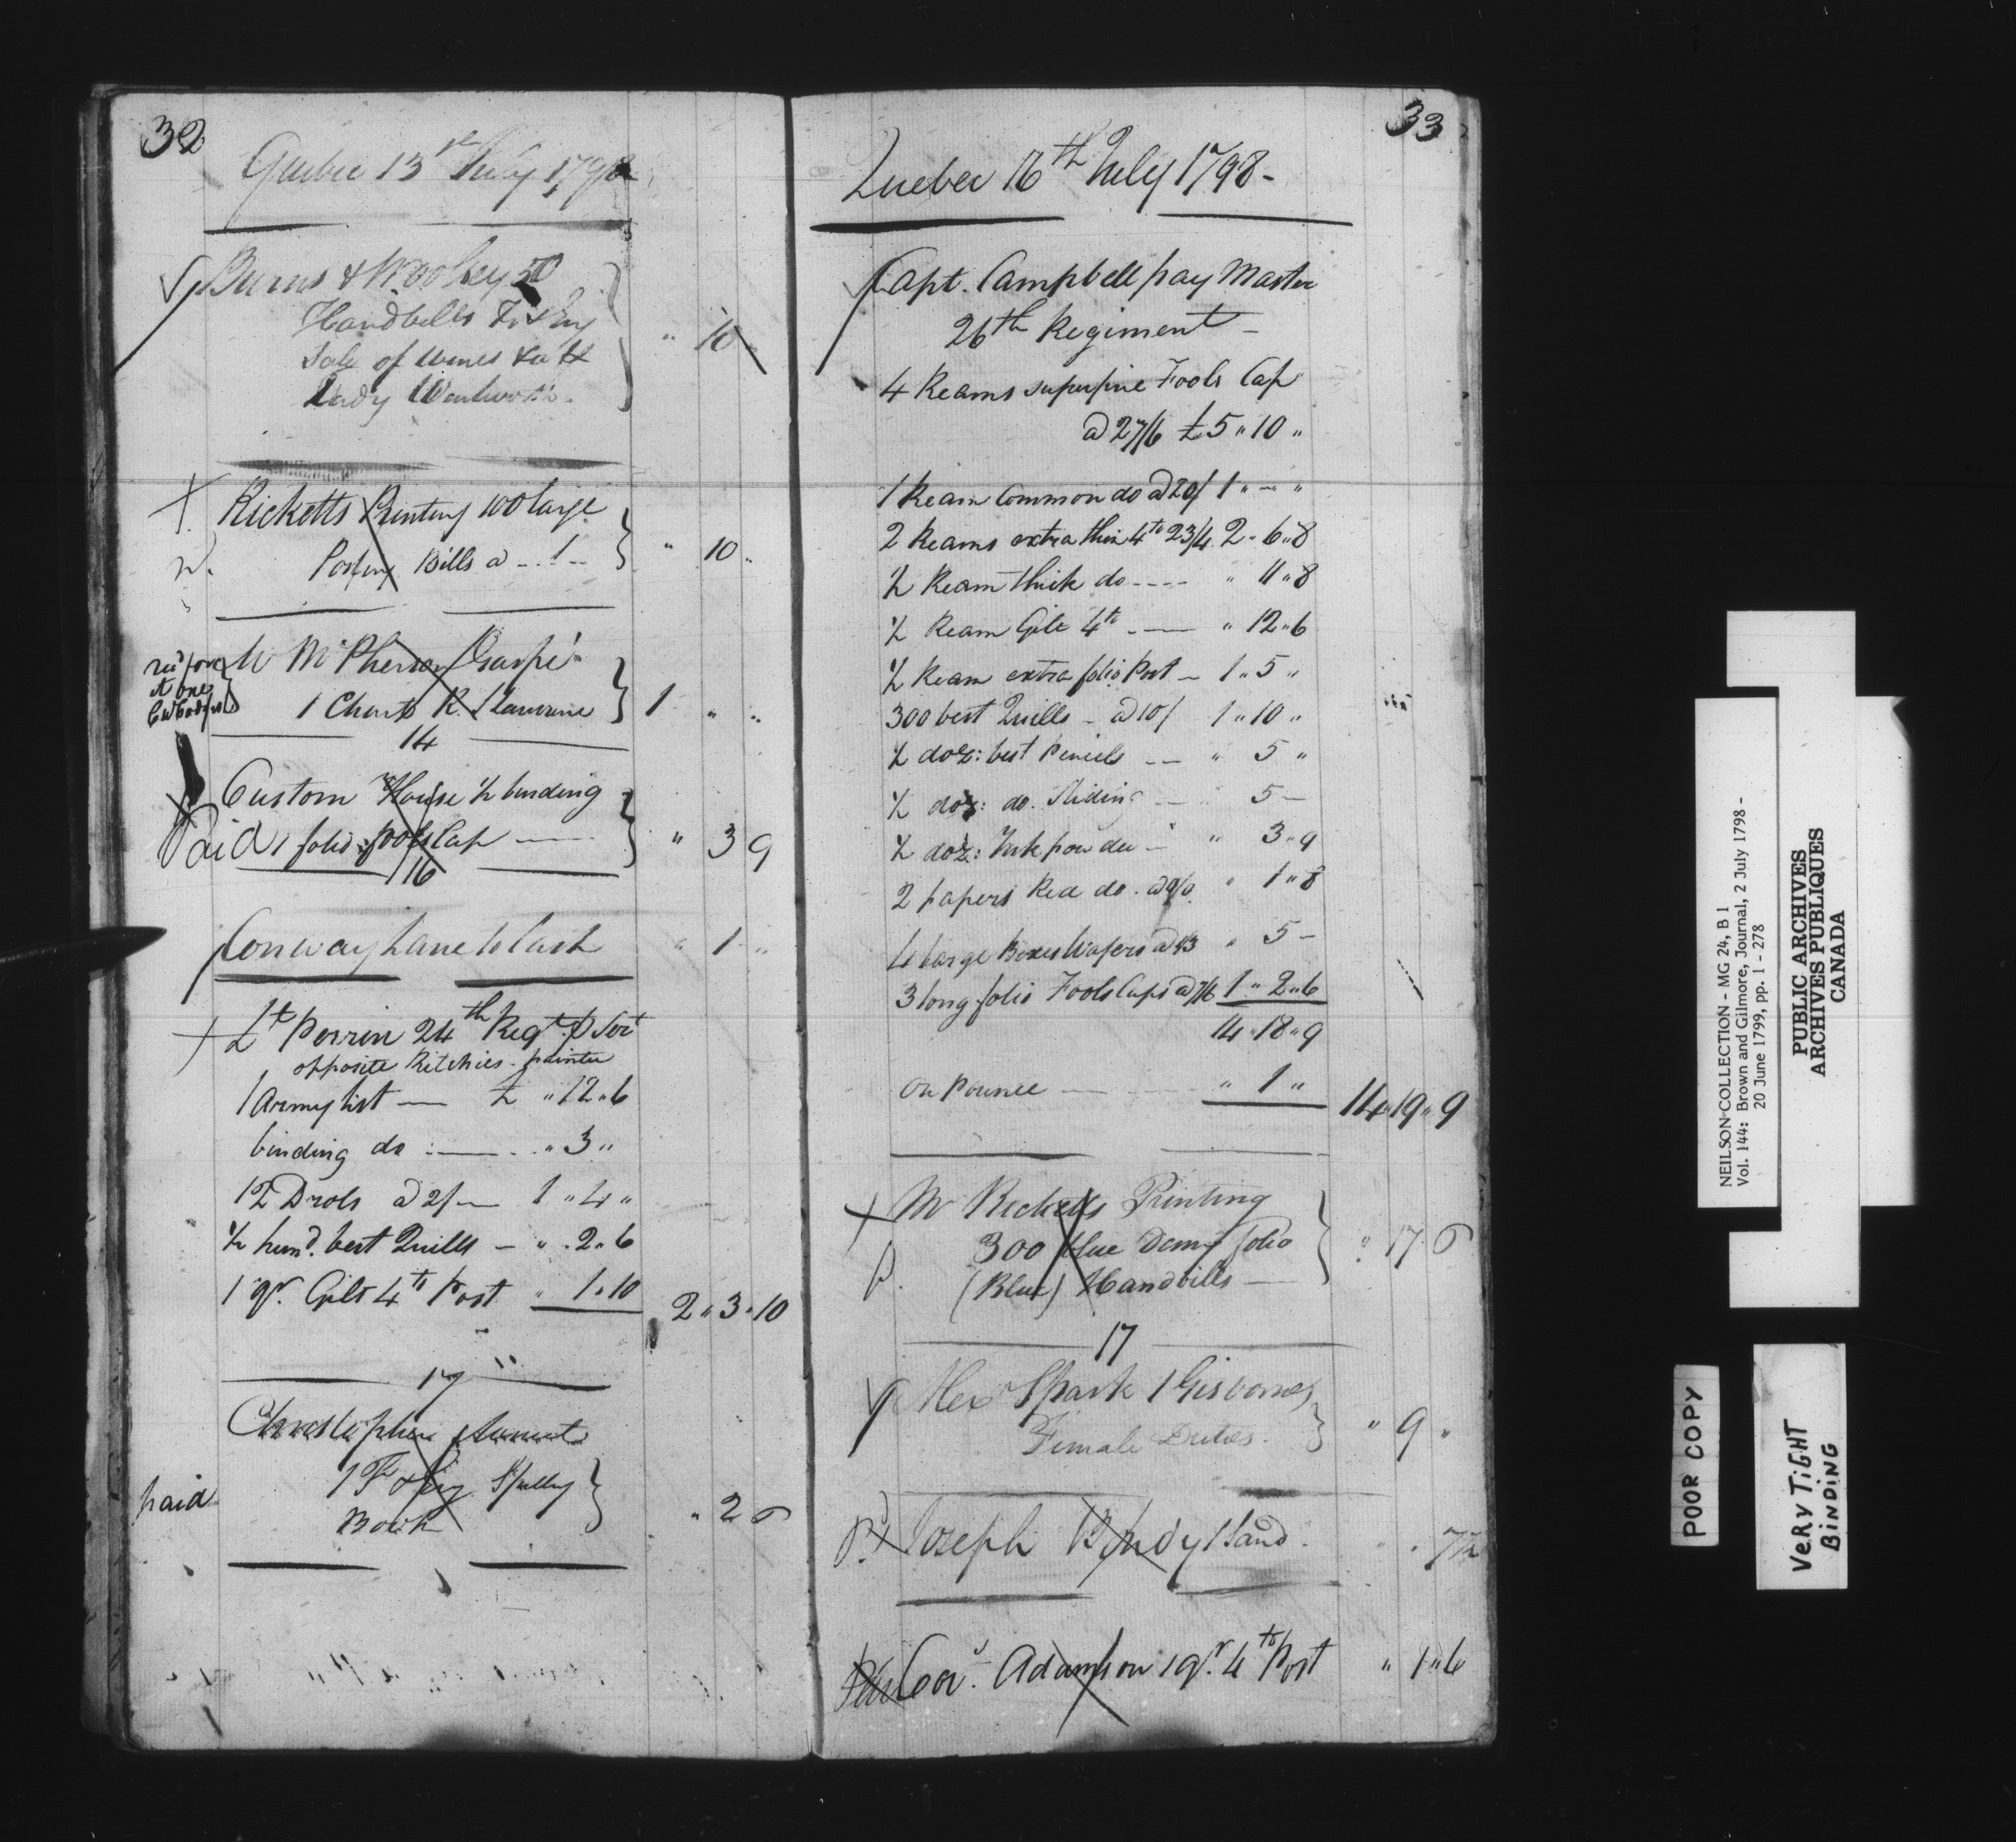 32
Quebec 13th July 1798
Burns & Woolsey 50
Handbills Fr & Eng
Sale of Wines &c
Lady Wentworth.
" 10
Ricketts Printing 100 large
Posting Bills a - 1 -
" 10 "
W McPherson Gaspé
1 Chart R. St Laurence
1 " "
14
Custom House ½ binding
Paid 1 folio fools Cap
" 3 9
16
Conway Lane to Cash
" 1 "
Lt Perrin 24th Regt
opposite Ritchies painter
1 Army list — £ " 12 " 6
binding do : — " 3 "
12 Drols a 2/— 1 " 4 "
½ hund. best Quills — " 2 " 6
1 qr. Gilt 4to Post " 1 " 10
2 " 3 " 10
17
Christopher
1 Fr & Eng Spelling
Book
paid
" 2 6
33
Quebec 16th July 1798 -
Capt. Campbell pay Master
26th Regiment —
4 Reams superfine Fools Cap
a 27/6 £5 " 10 "
1 Ream Common do a 20/ 1 " — "
2 Reams extra thin 4to 23/4 2 " 6 " 8
½ Ream thick do ---- " 11 " 8
½ Ream Gilt 4to — " 12 " 6
½ Ream extra folio Post — 1 " 5 "
300 best Quills - a 10/ 1 " 10 "
½ doz: best Pencils — " 5 "
½ doz: do. Sliding — " 5 —
½ doz: Ink powder — " 3 " 9
2 papers Red do. " 1 " 8
4 large Boxes Wafers a 1/3 " 5 —
3 long folio Fools Caps a 7/6 1 " 2 " 6
14 " 18 " 9
Pounce — " 1 "
14 " 19 " 9
Mr Ricketts Printing
300 blue Demy folio
(Blue) Handbills —
" 17 6
17
Alex Spark 1 Gisbornes
Female Duties.
" 9 "
Joseph 1 Sand.
" " 7½
Cor. Adamson 1 qr. 4to Post
" 1 " 6
NEILSON COLLECTION - MG 24, B 1
Vol. 144: Brown and Gilmore, Journal, 2 July 1798 -
20 June 1799, pp. 1 - 278
PUBLIC ARCHIVES
ARCHIVES PUBLIQUES
CANADA
POOR COPY
VERY TiGHT
BiNDiNG